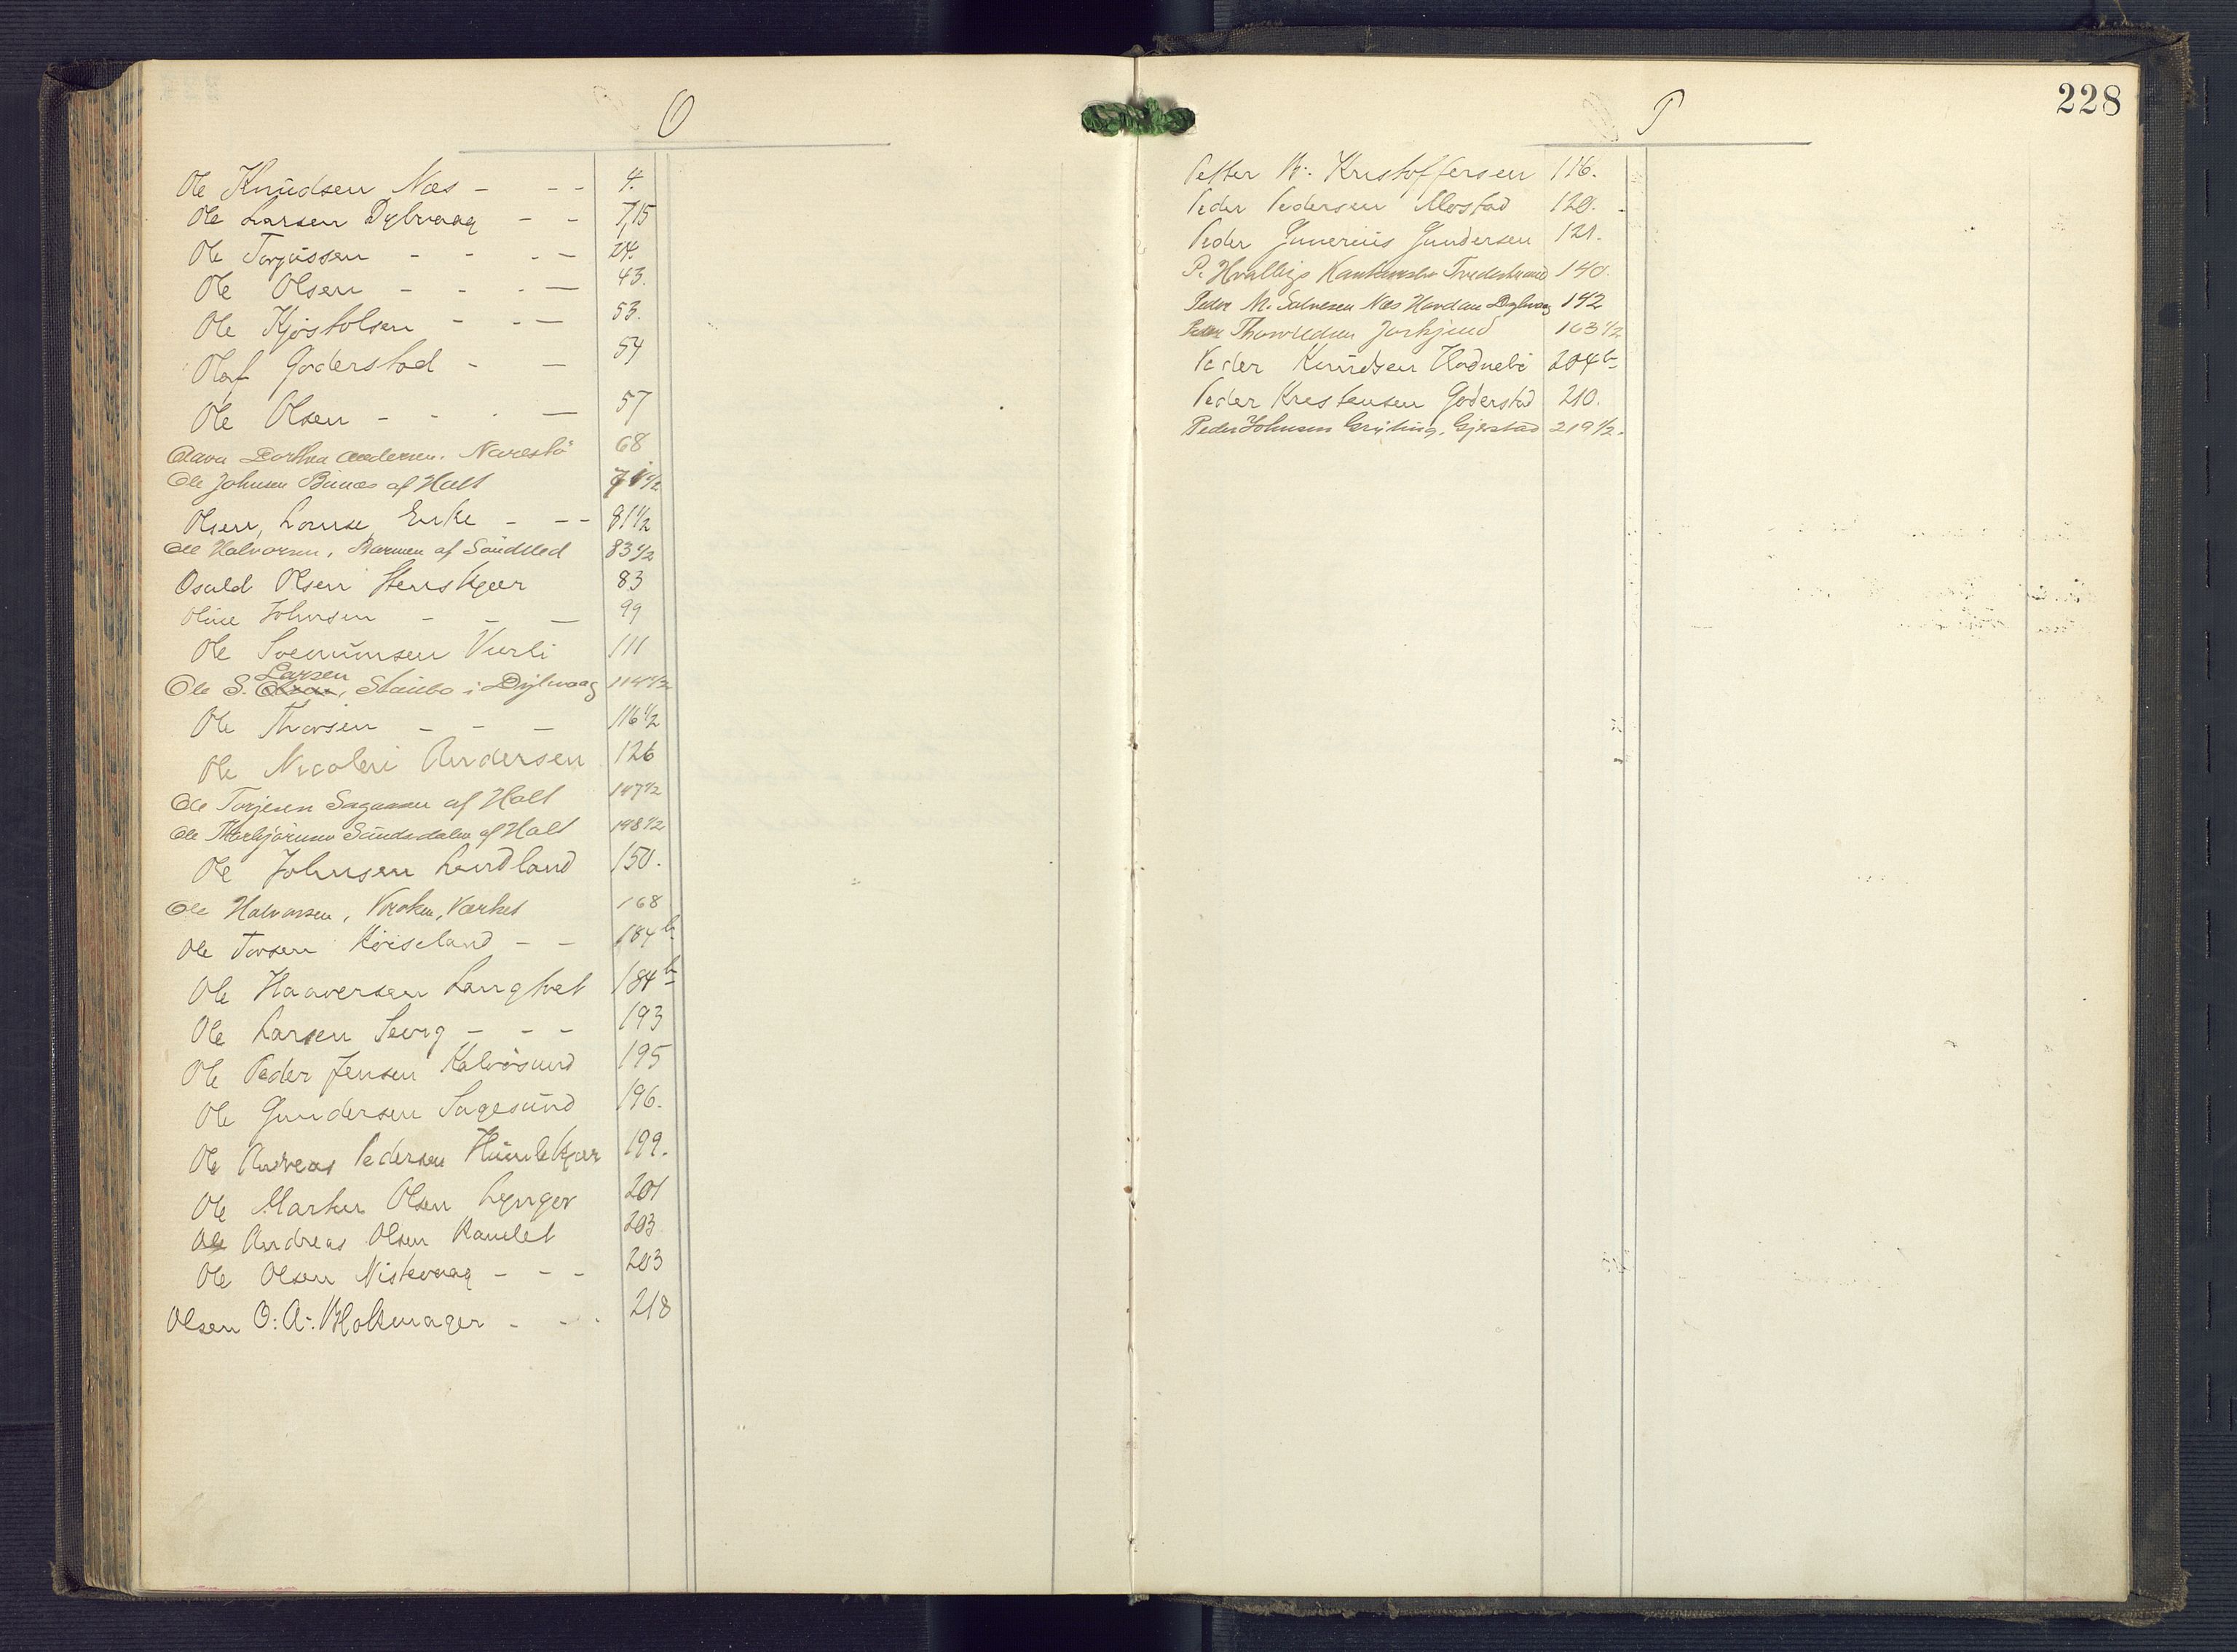 O
Ole Knudsen Næs - - - 4.
Ole Larsen Dybvaag - - 7,15
Ole Torjussen - - - - 24.
Ole Olsen - - - - 43.
Ole Kjøstolsen - - - 53.
Olaf Goderstad - - 54
Ole Olsen - - - - 57
Olava Dorthea Andersen. Narestö 68
Ole Johnsen Bunæs af Holt 71 1/2
Olsen, Lovise, Enke - - - 81 1/2
Ole Halvorsen, Barmen af Söndeled 83 1/2
Osuld Olsen Stenskjær 83
Oline Johnsen - - - 99
Ole Svenumsen Verli 111
Larsen
Ole S. Olsen, Staubo i Dybvaag 114 1/2
Ole Thorsen - - - 116 1/2
Ole Nicolai Andersen 126
Ole Torjesen Sagaasen af Holt 147 1/2
Ole Thorbjörnsen Söndsdalen af Holt 148 1/2
Ole Johnsen Lindland 150.
Ole Halvorsen, Kroken, Værket 168
Ole Torsen Röiseland - - 184 b
Ole Haaversen Langtvet 184 b
Ole Larsen Sevig - - - 193
Ole Peder Jensen Kalvøsund 195
Ole Gundersen Sagesund 196.
Ole Andreas Pedersen Humlekjær 199.
Ole Martin Olsen Lyngør 201
Ole Andreas Olsen Ramlet 203
Ole Olsen Nistevaag - - - 203
Olsen O: A: Blokmager - - - 218
P
228
Petter B: Kristoffersen 116.
Peder Pedersen Mostad 120.
Peder Gunerius Gundersen 121.
P. Hvallezs Tvedestrand 140.
Peder M. Salvesen Næs Dybvaag 142
Peder Thorvildsen 163 1/2
Peder Knudsen Hødnebø 204 b
Peder Kristensen Goderstad 210.
Peder Johnsen Gryting. Gjerstad 219 1/2.